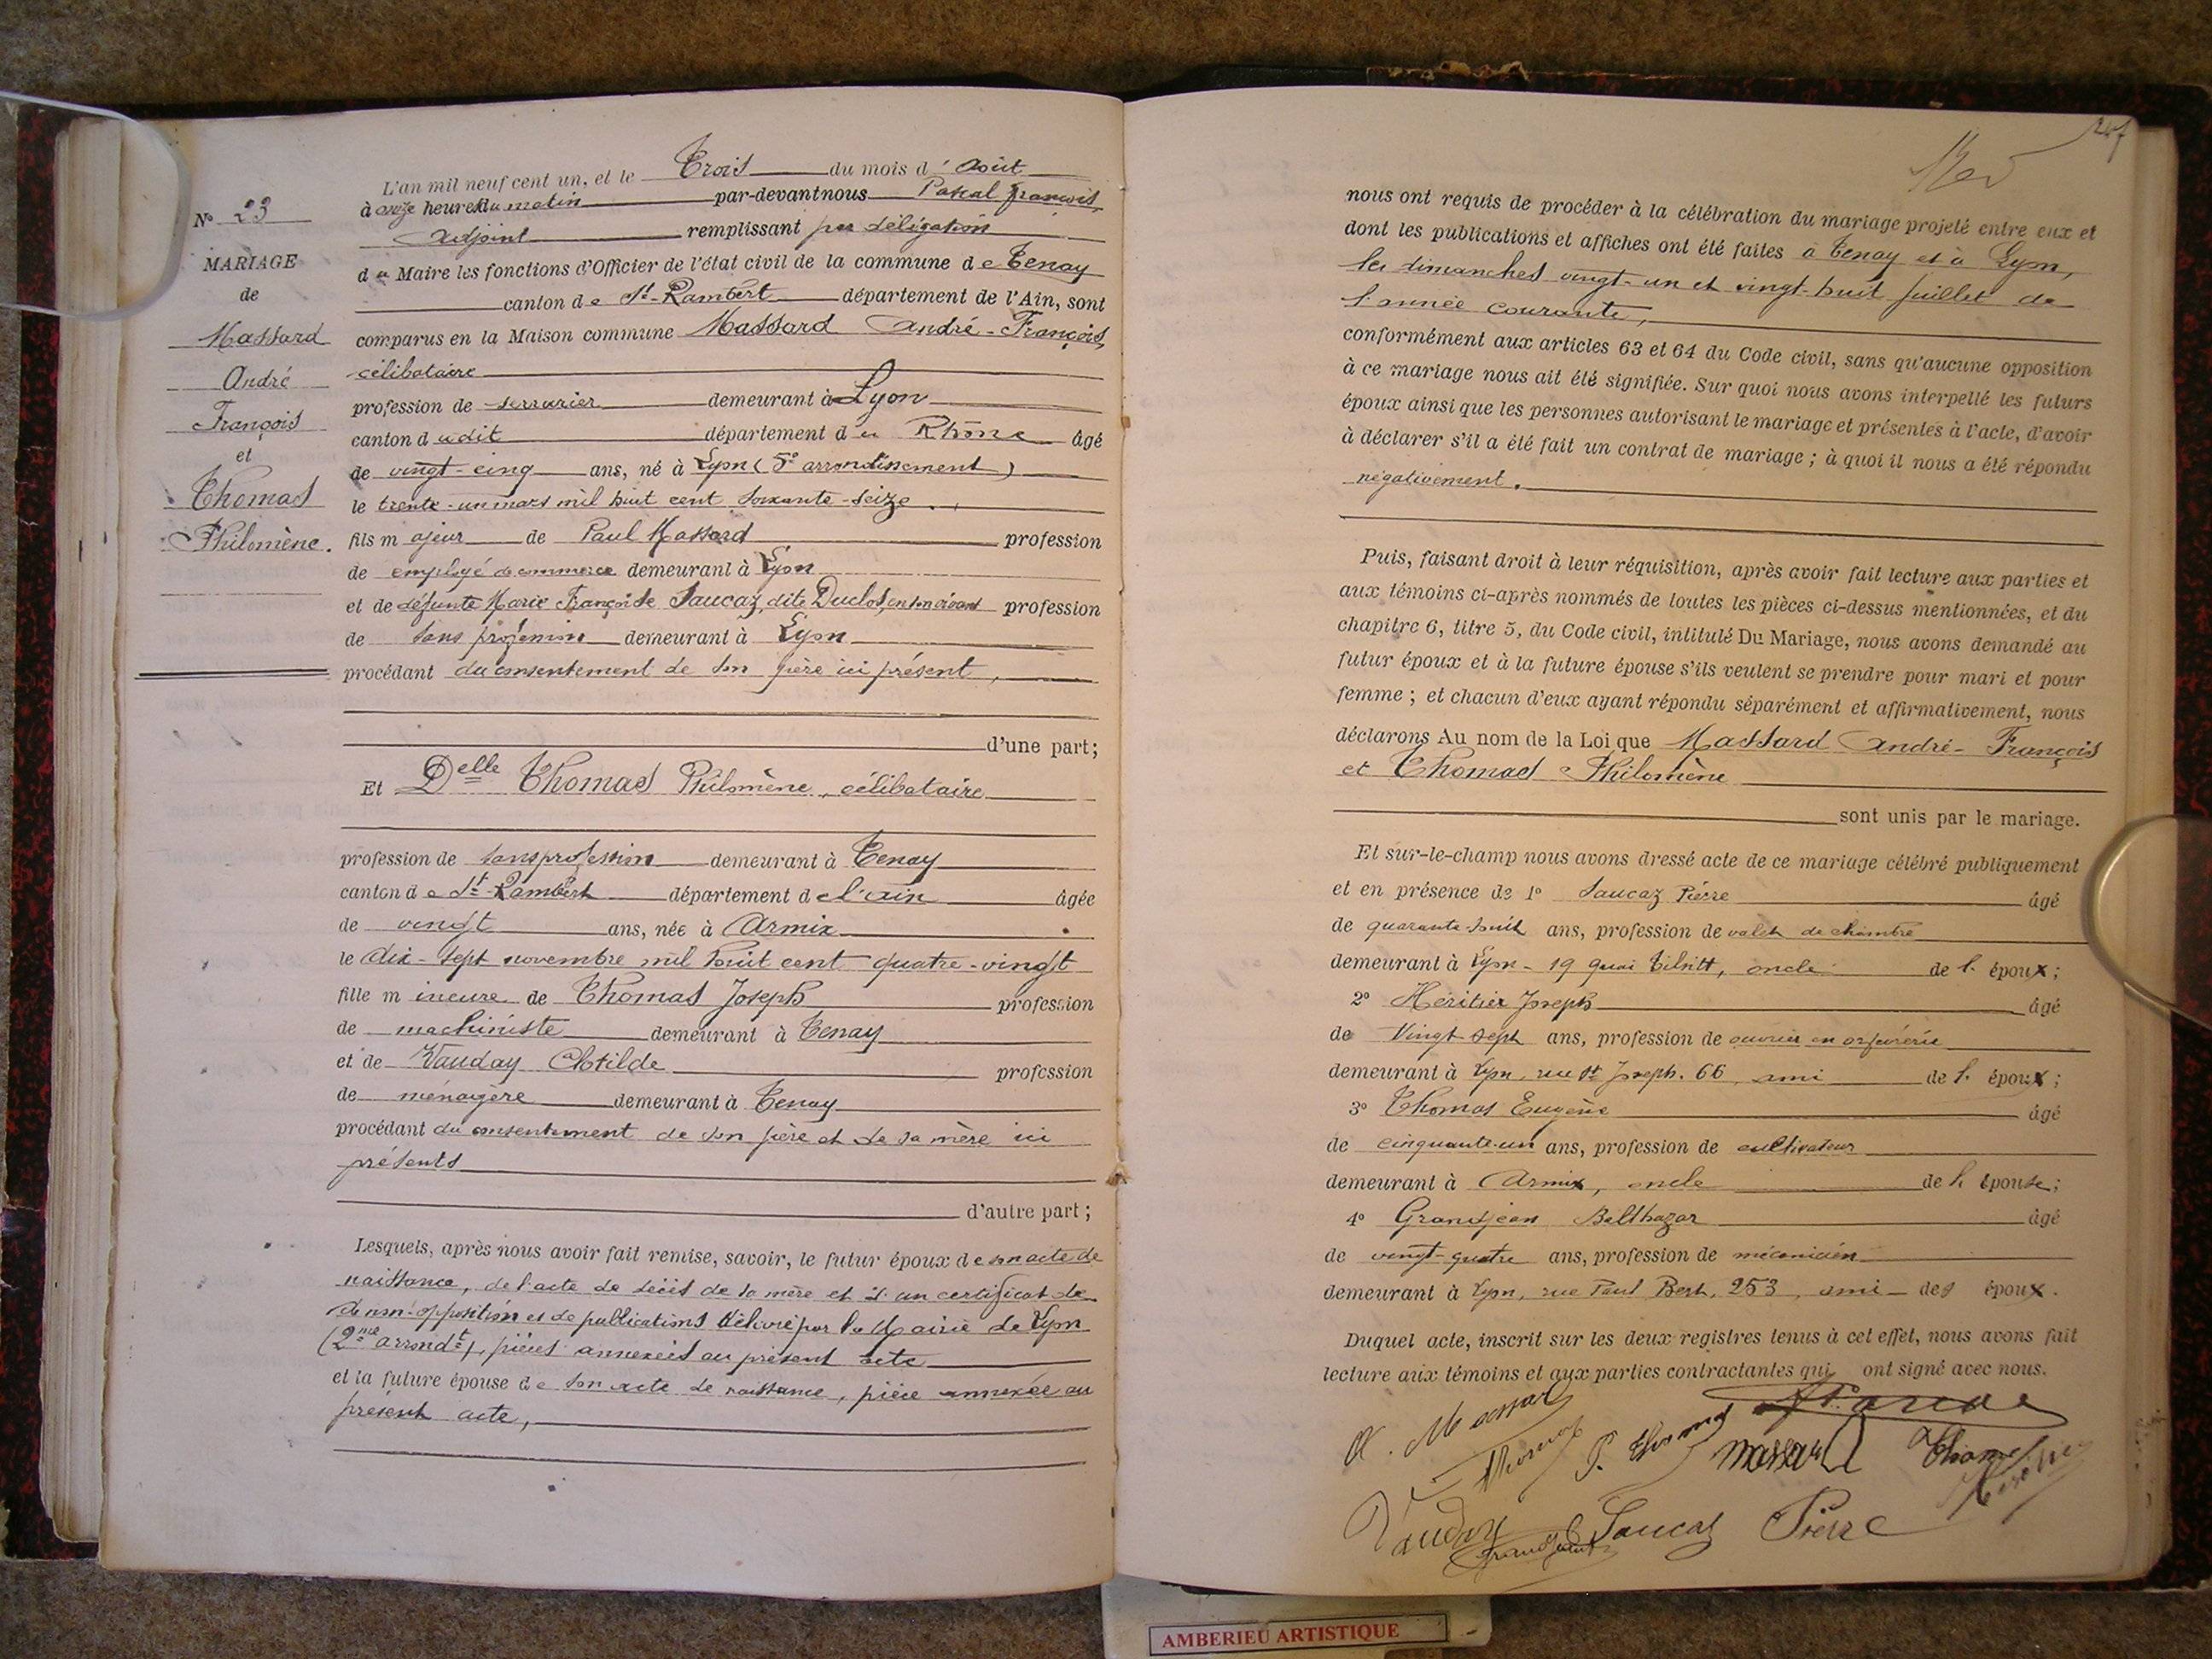 N° 23
MARIAGE
de
Massard
André
François
et
Thomas
Philomène.
L'an mil neuf cent un, et le Trois du mois d'Août
à onze heures du matin par-devant nous Pascal François,
Adjoint remplissant par délégation
du Maire les fonctions d'Officier de l'état civil de la commune de Tenay
canton de St-Rambert département de l'Ain, sont
comparus en la Maison commune Massard André-François,
célibataire
profession de serrurier demeurant à Lyon
canton dudit département du Rhône âgé
de vingt-cinq ans, né à Lyon (5e arrondissement)
le trente-un mars mil huit cent soixante-seize.
fils majeur de Paul Massard profession
de employé de commerce demeurant à Lyon
et de défunte Marie Françoise Saucaz, dite Duclos, en son vivant profession
de sans profession demeurant à Lyon
procédant du consentement de son père ici présent,
d'une part;
Et Delle Thomas Philomène, célibataire
profession de sans profession demeurant à Tenay
canton de St-Rambert département de l'ain âgée
de vingt ans, née à Armix
le dix-sept novembre mil huit cent quatre-vingt
fille mineure de Thomas Joseph profession
de machiniste demeurant à Tenay
et de Vauday Clotilde profession
de ménagère demeurant à Tenay
procédant du consentement de son père et de sa mère ici
présents
d'autre part;
Lesquels, après nous avoir fait remise, savoir, le futur époux de son acte de
naissance, de l'acte de décès de sa mère et d'un certificat de
de non-opposition et de publications délivré par la Mairie de Lyon
(2me arrondt), pièces annexées au présent acte
et la future épouse de son acte de naissance, pièce annexée au
présent acte,
247
nous ont requis de procéder à la célébration du mariage projeté entre eux et
dont les publications et affiches ont été faites à Tenay et à Lyon,
les dimanches vingt-un et vingt-huit juillet de
l'année courante,
conformément aux articles 63 et 64 du Code civil, sans qu'aucune opposition
à ce mariage nous ait été signifiée. Sur quoi nous avons interpellé les futurs
époux ainsi que les personnes autorisant le mariage et présentes à l'acte, d'avoir
à déclarer s'il a été fait un contrat de mariage ; à quoi il nous a été répondu
négativement.
Puis, faisant droit à leur réquisition, après avoir fait lecture aux parties et
aux témoins ci-après nommés de toutes les pièces ci-dessus mentionnées, et du
chapitre 6, titre 5, du Code civil, intitulé Du Mariage, nous avons demandé au
futur époux et à la future épouse s'ils veulent se prendre pour mari et pour
femme ; et chacun d'eux ayant répondu séparément et affirmativement, nous
déclarons Au nom de la Loi que Massard André-François
et Thomas Philomène
sont unis par le mariage.
Et sur-le-champ nous avons dressé acte de ce mariage célébré publiquement
et en présence de 1° Saucaz Pierre âgé
de quarante-huit ans, profession de valet de chambre
demeurant à Lyon - 19 quai Tilsitt, oncle de l'époux;
2° Héritier Joseph âgé
de Vingt-sept ans, profession de ouvrier en orfévrérie
demeurant à Lyon, rue St Joseph. 66, ami de l'époux;
3° Thomas Eugène âgé
de cinquante-un ans, profession de cultivateur
demeurant à Armix, oncle de l'épouse;
4° Grandjean Balthazar âgé
de vingt-quatre ans, profession de mécanicien
demeurant à Lyon, rue Paul Bert, 253, ami des époux.
Duquel acte, inscrit sur les deux registres tenus à cet effet, nous avons fait
lecture aux témoins et aux parties contractantes qui ont signé avec nous.
A. Massard
Thomas P. Thomas Massard Thomas
Vauday Grandjean Saucaz Pierre
AMBERIEU ARTISTIQUE